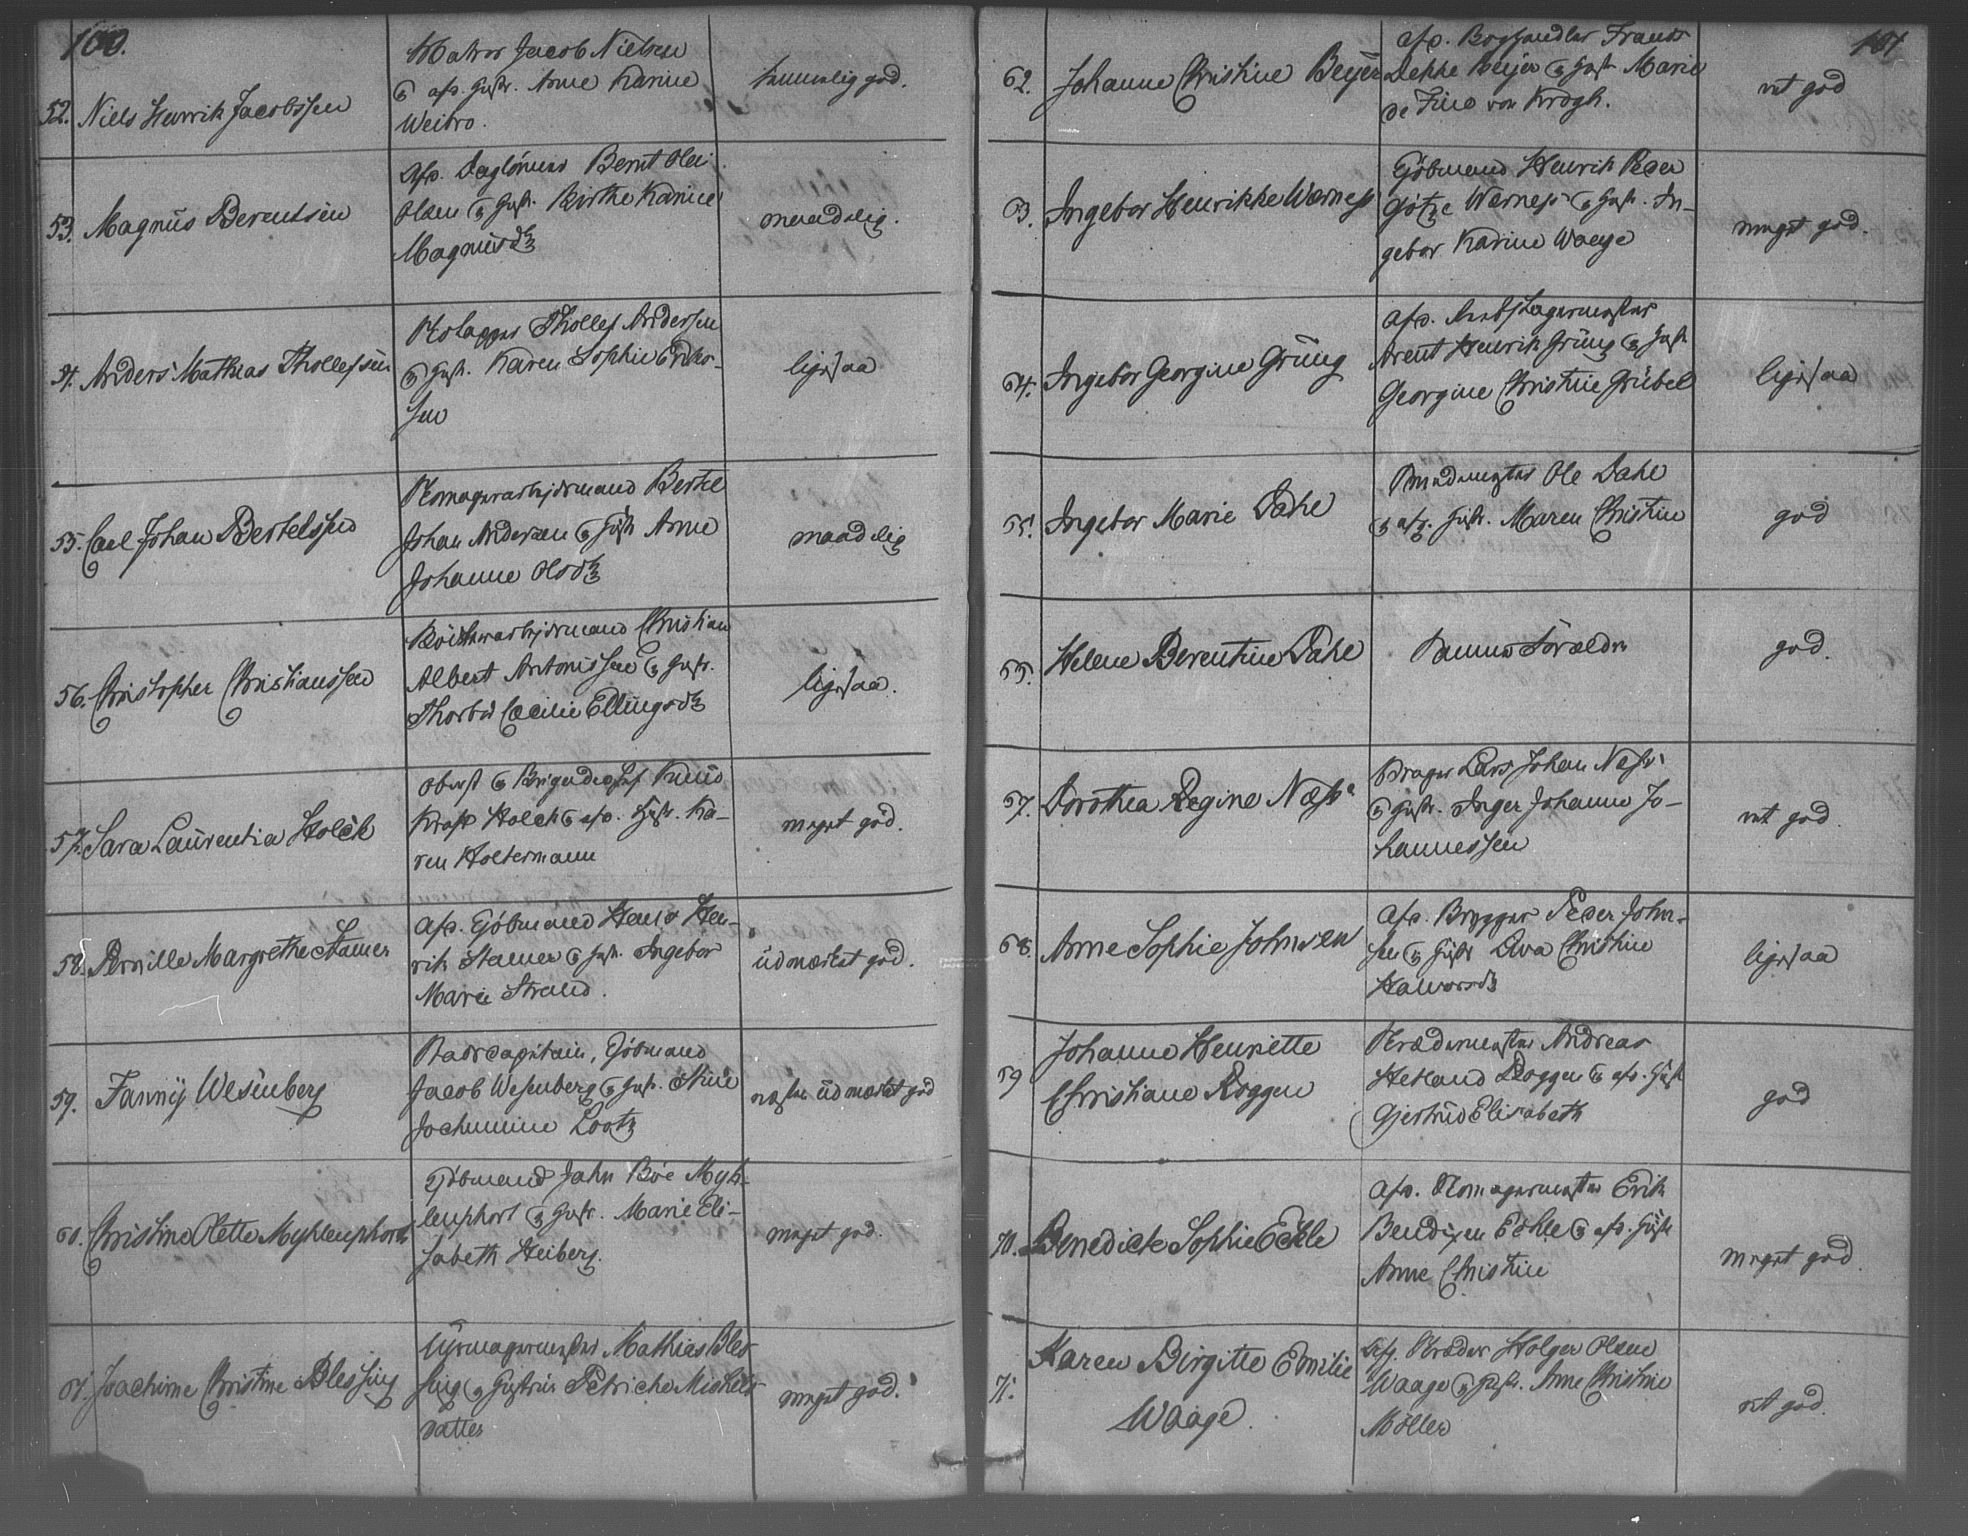 100.
52. Niels Henrik Jacobssen
Matros Jacob Nielsen
& afd. Hustr. Anne Karine
Weibro.
temmelig god.
53. Magnus Berentsen
Afd. Daglönner Bernt Olai
Olsen & Hustr. Birthe Karine
Magnusd.
maadelig.
54. Anders Mathias Thollefsen
Thollef Andersen
& Hustr. Karen Sophie Eriks-
sen
ligesaa
55. Carl Johan Bertelssen
Bertel
Johan Andersen & Hustr Anne
Johanne Olsd.
maadelig
56. Christopher Christianssen
Christian
Albert Antonissen & Hustr.
Thorbor Cæcilie Ellingsd.
ligesaa.
57. Sara Laurentia Holck
Oberst & Brigadechef Knud
Krafft Holck & afd. Hustr. Ka-
ren Holtermann
meget god.
58. Pernille Margrethe Stamer
Afd. Kjöbmand Hans Hen-
rik Stamer & Hustr. Ingebor
Marie Strand.
udmærket god.
59. Fanny Wesenberg
Jacob Wesenberg & Hustr. Stine
Jochumine Lootz
næsten udmærket god
60. Christine Olette Myhlenphort
Kjöbmand Jahn Böe Myh-
lenphort & Hustr. Marie Eli-
sabeth Heiberg.
meget god.
61. Joachime Christine Blessing
Uhrmagermester Mathias Bles-
sing & Hustrue Petriche Michels-
datter
meget god.
101
62. Johanne Christine Beyer
afd. Boghandler Frants
Dekke Beijer & Hustr Marie
de Fine von Krogh.
ret god
63. Ingebor Henrikke Werness
Kjöbmand Henrik Peder
Götze Werness & Hustr. In-
gebor Karine Waage
meget god.
64. Ingebor Georgine Grüng
Arent Henrik Grüng & Hustr
Georgine Christine Grübel
ligesaa
65. Ingebor Marie Dahl
Ole Dahl
& afd. Hustr. Maren Christine
god
66. Helene Berentine Dahl
Samme Forældre
god.
67. Dorothea Regine Næss
Drager Lars Johan Næss
& Hustr. Inger Johanne Jo-
hannessen
ret god
68. Anne Sophie Johnsen
Afd. Brygger Peder John-
sen & Hustr Christine
Halvorsd
ligesaa
69 Johanne Henriette
Christiane Roggen
Skrædermester Andreas
Hetland Roggen & afd. Hustr
Gjertrud Elisabeth
god
70. Benedicte Sophie Eckle
Afd. Erik
Bendixen Eckle & afd. Hustr
Anne Christine
meget god.
71. Karen Birgitte Emilie
Waage.
Afd. Skræder Holger Olsen
Waage & Hustr. Anne Christine
Möller
ret god.